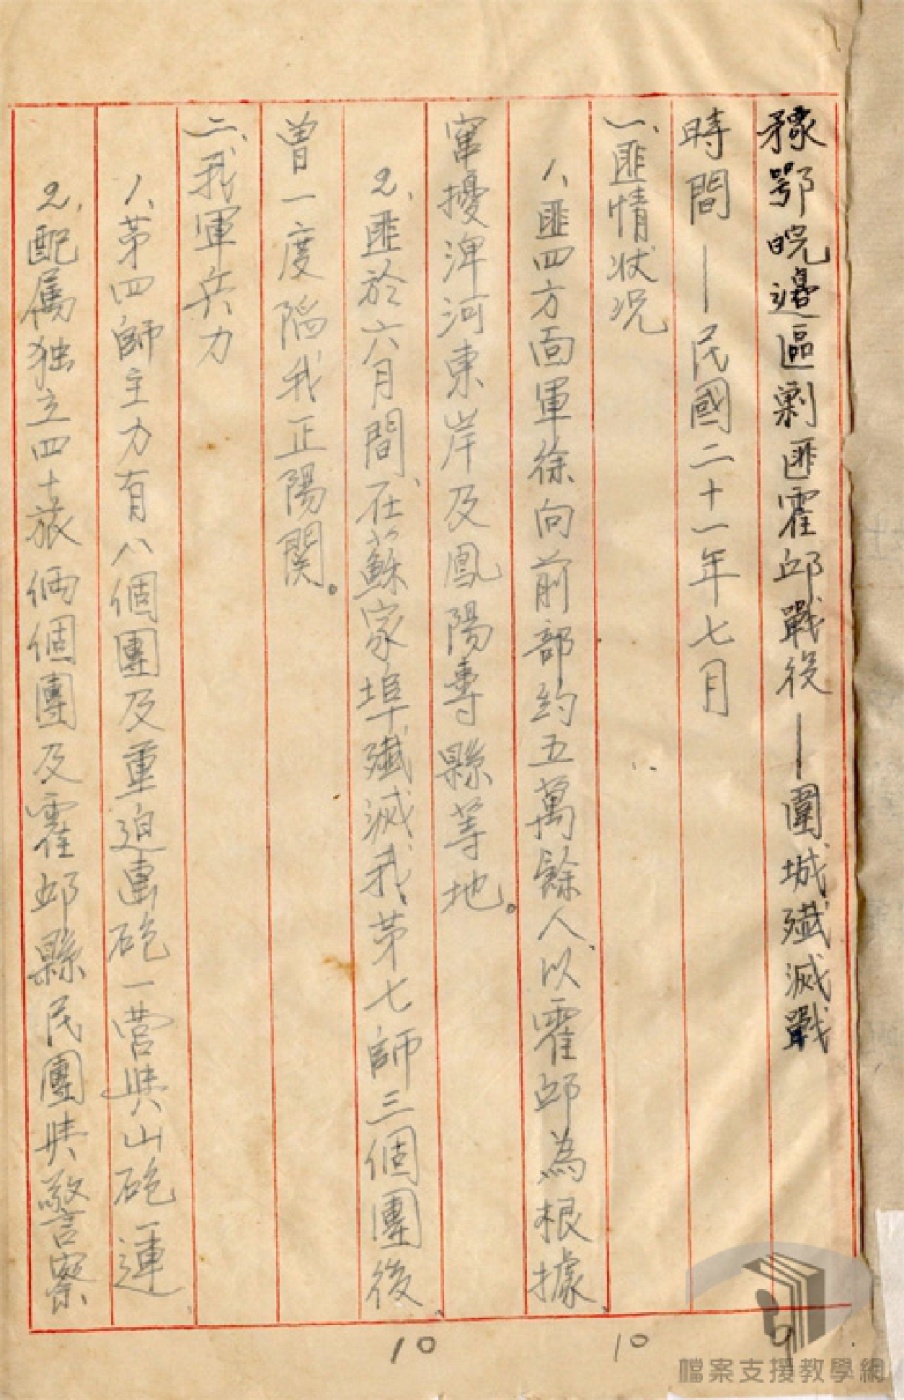 豫鄂皖邊區剿匪霍邱戰役－圍城殲滅戰
時間－民國二十一年七月
一、匪情狀況
1、匪四方面軍徐向前部約五萬餘人、以霍邱為根據、
竄擾淠河東岸及鳳陽壽縣等地。
2、匪於六月間、在蘇家埠殲滅我第七師三個團後、
曾一度陷我正陽関。
二、我軍兵力
1、第四師主力有八個團及重迫擊砲一營與山砲一連
2、配属独立四十旅倆個團及霍邱縣民團與警察
10
10
9
檔案支援教學網